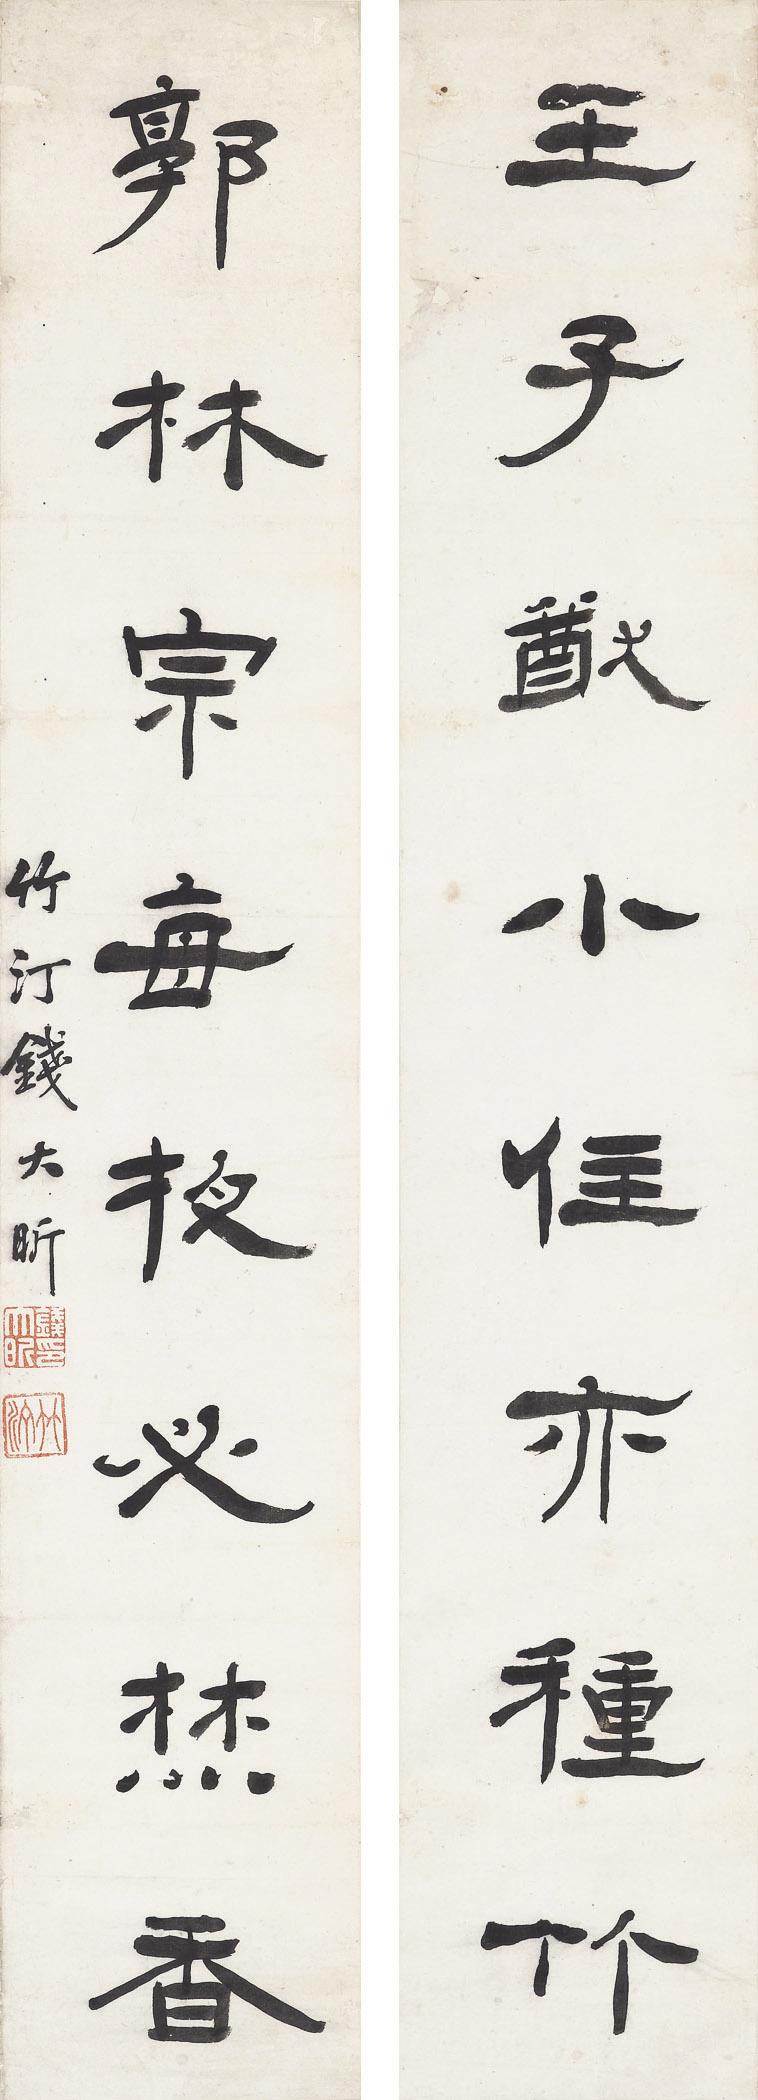 王子猷小住亦種竹
郭林宗每投必焚香
竹汀錢大昕
錢印大昕
竹汀